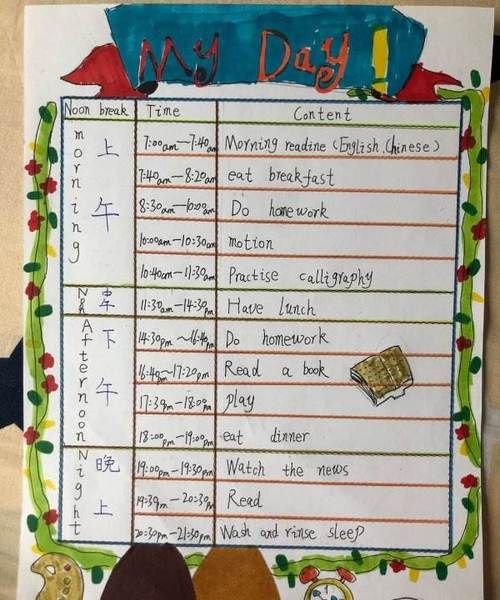 My Day!
Noon break Time Content
morning 上午 7:00am—7:40am Morning readine (English, Chinese)
7:40am—8:20am eat breakfast
8:30am—10:00am Do homework
10:00am—10:30am motion
10:40am—11:30am Practise calligraphy
11:30am—14:30pm Have lunch
Afternoon 下午 14:30pm—16:40pm Do homework
16:40pm—17:20pm Read a book
17:30pm—18:00pm play
18:00pm—19:00pm eat dinner
Night 晚上 19:00pm—19:30pm Watch the news
19:30pm—20:30pm Read
20:30pm—21:30pm Wash and rinse sleep